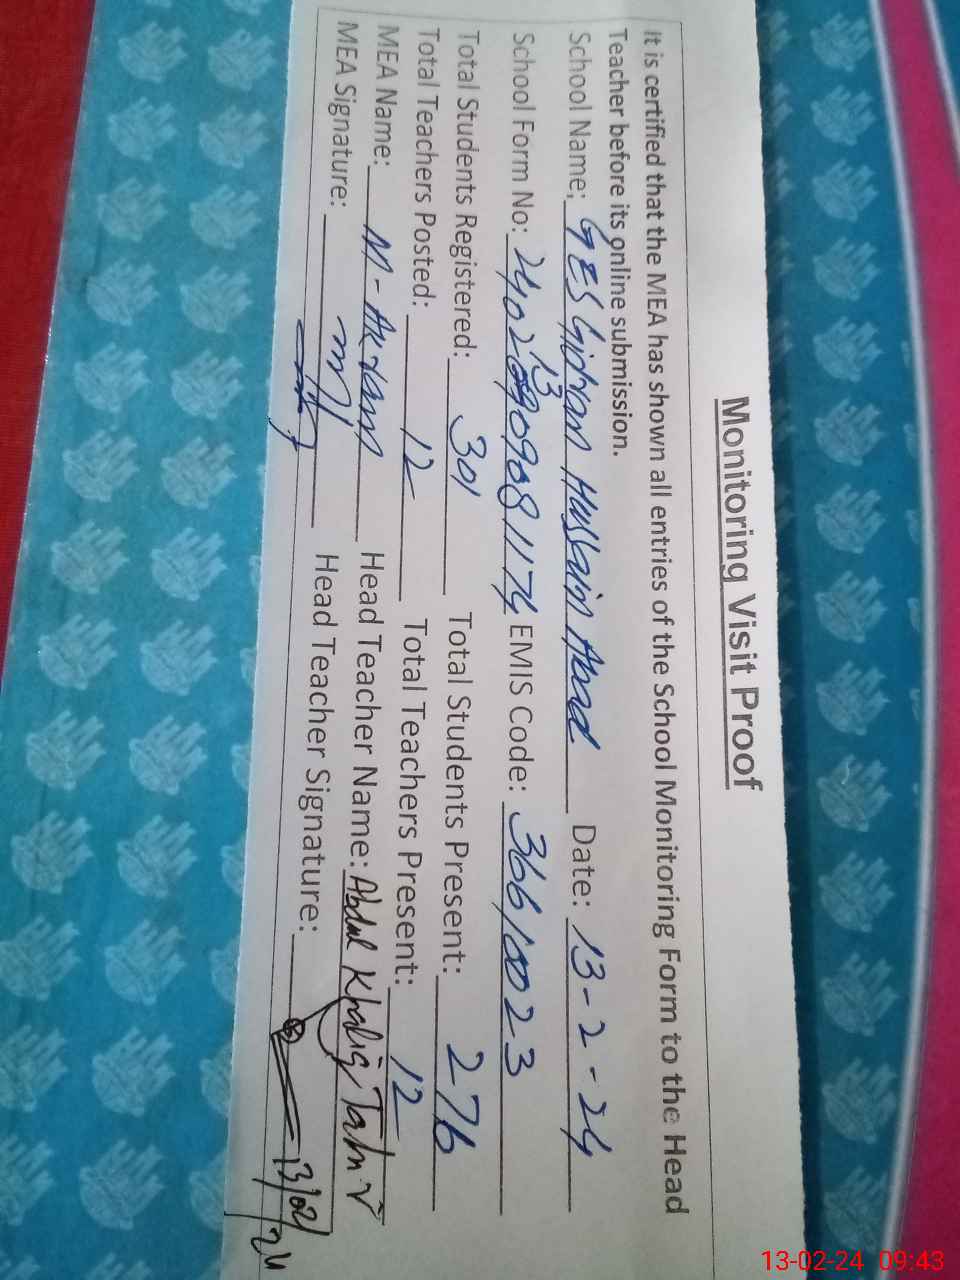 Monitoring Visit Proof
It is certified that the MEA has shown all entries of the School Monitoring Form to the Head
Teacher before its online submission.
School Name: GES Hussain Abad Date: 13-2-24
School Form No: EMIS Code: 36610023
Total Students Registered: 301 Total Students Present: 276
Total Teachers Posted: 12 Total Teachers Present: 12
MEA Name: M-Akram Head Teacher Name: Abdul Khaliq Tahir
MEA Signature: Head Teacher Signature:
13/02/24
13-02-24 09:43